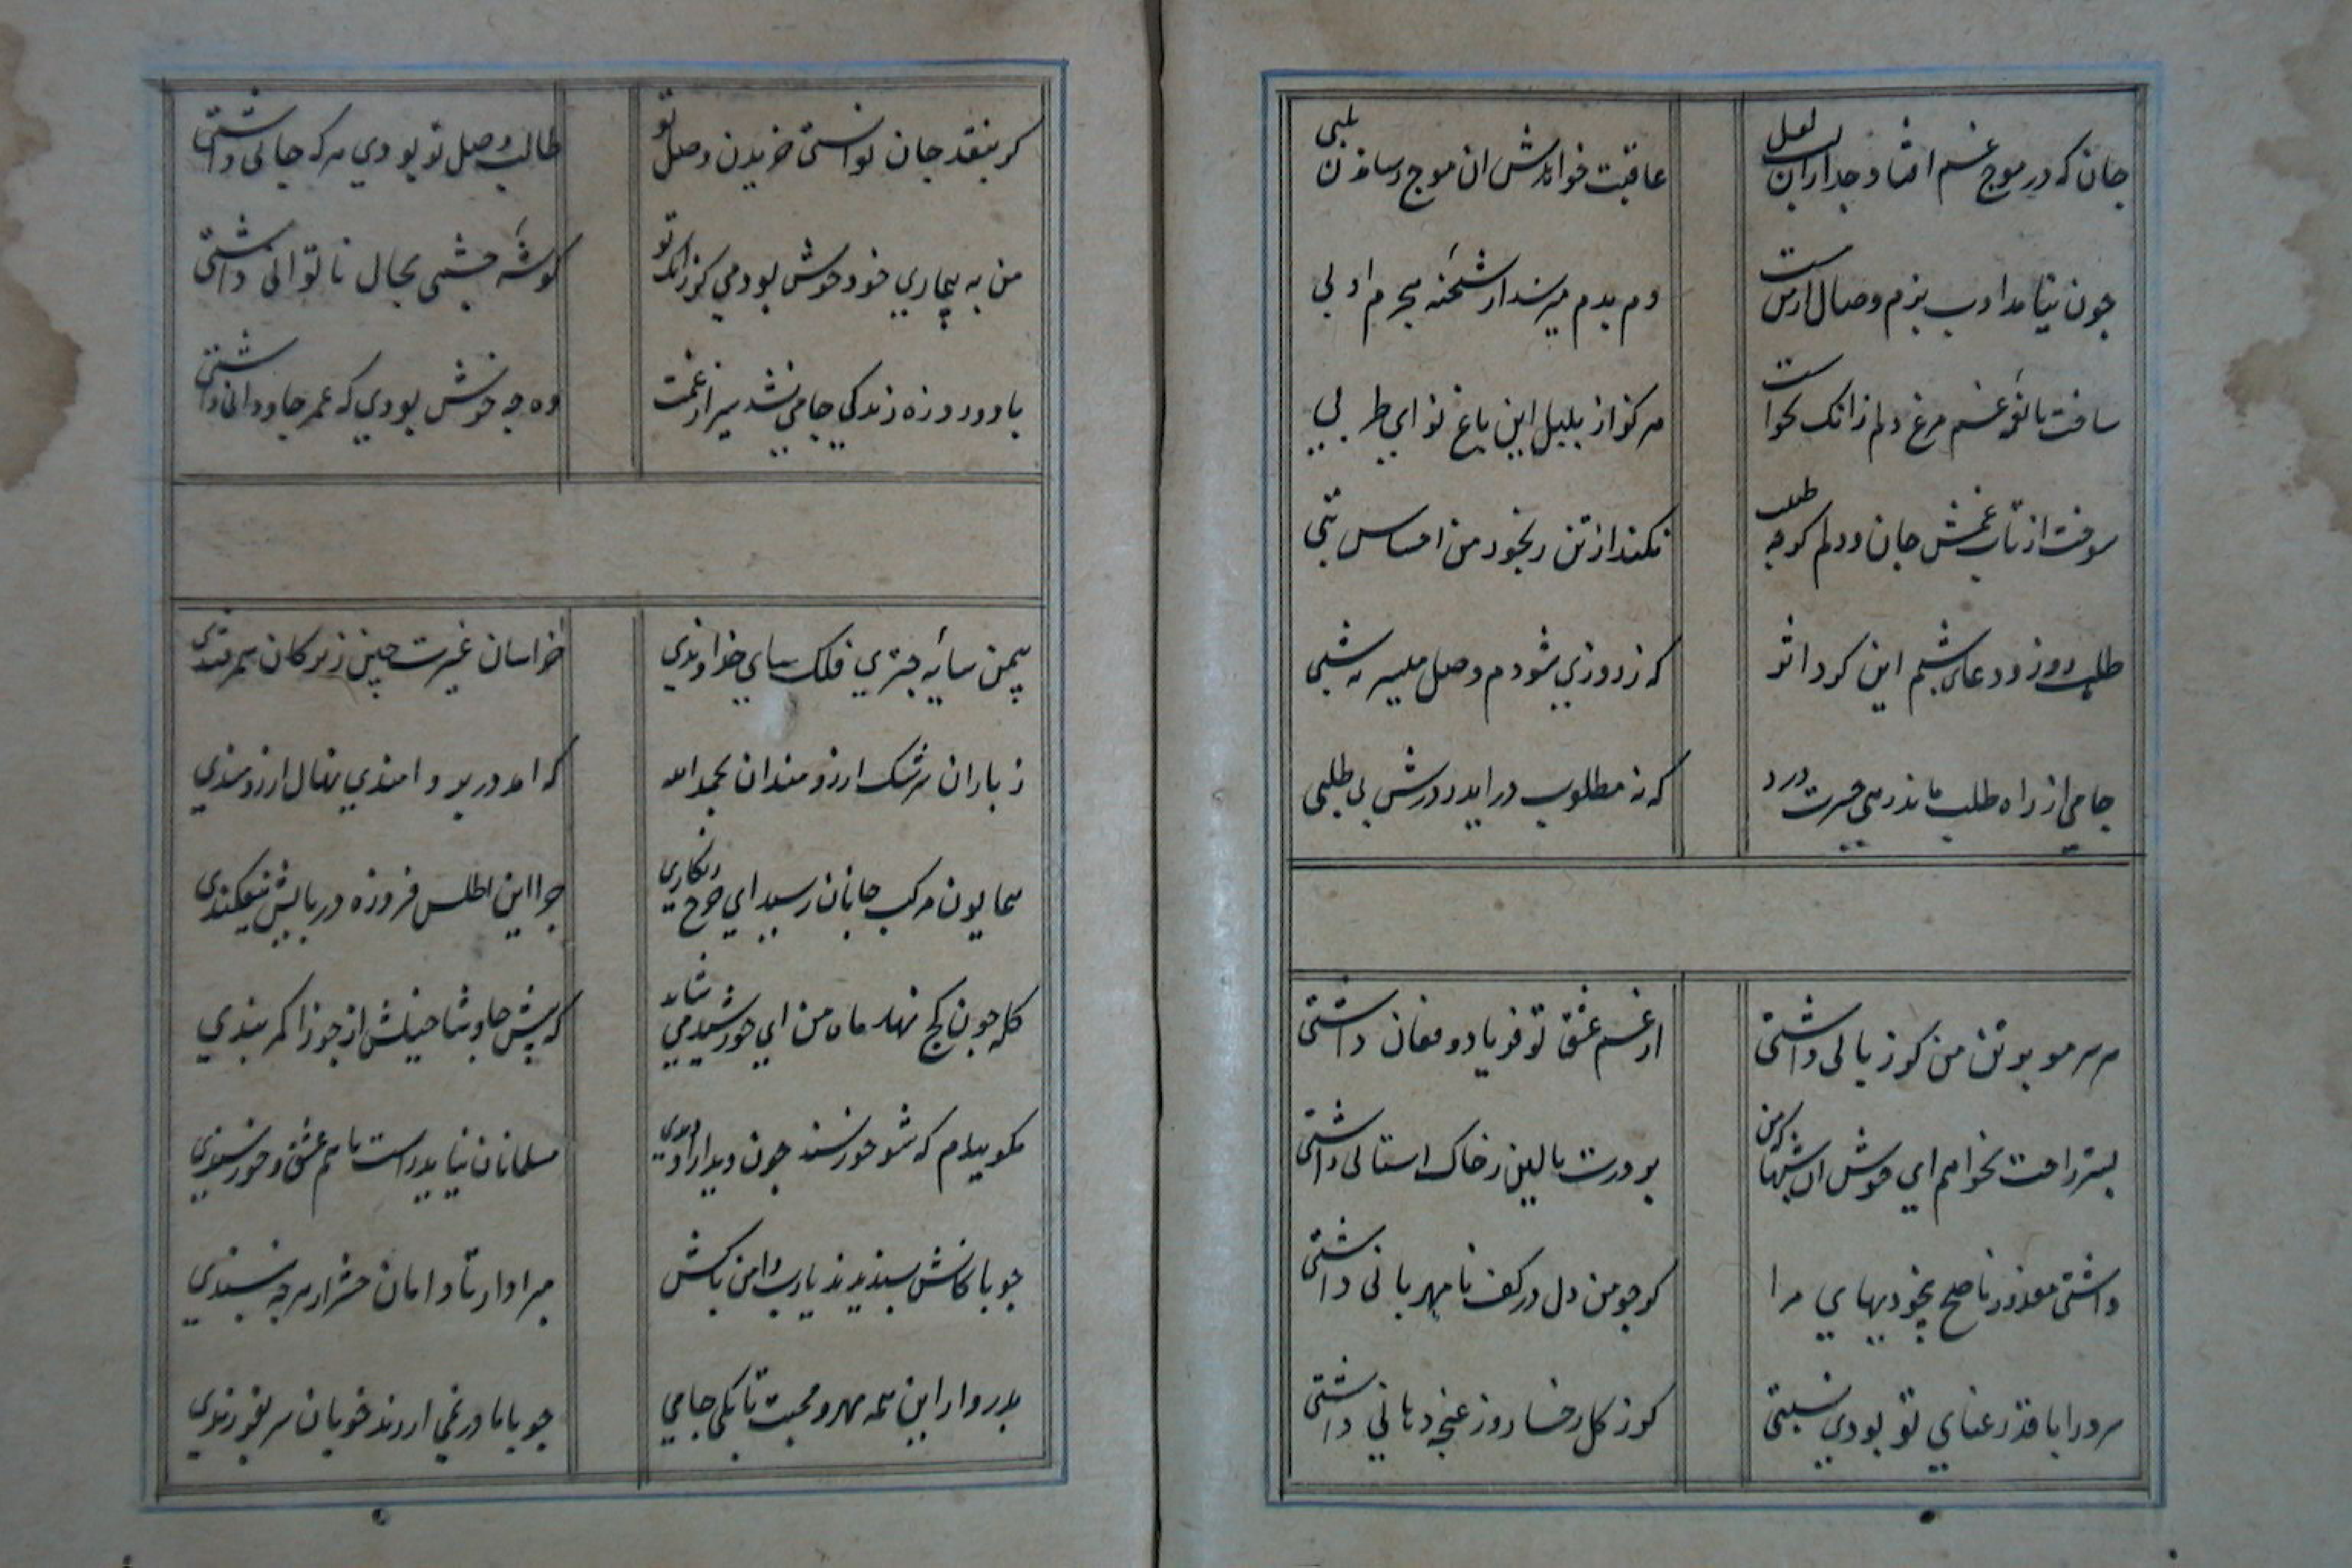 جان که در موج غم افتاد جدا زان لب لعل
عاقبت خواندش ان موج رساندن بلبی
چون نیامد ادب بزم وصال از من مست
دم بدم میرسد از شحنه هجرم ادبی
ساخت با نغمه غم مرغ دلم زانک نخواست
هرکز از بلبل این باغ نوای طربی
سوخت از تاب غمش جان و دلم کرچه طبیب
نکند از تن رنجور من احساس تبی
طلب روز و دعای شبم این کرد اثر
که نه روزی شودم وصل میسر نه شبی
جامی از راه طلب ماند زهی حسرت و درد
که نه مطلوب در اید ز درش بی طلبی
هر سر مو بر تن من کر زبانی داشتی
از غم عشق تو فریاد و فغان داشتی
بستر راحت نخواهم ای خوش ان شبها که من
بر درت بالین ز خاک استانی داشتی
داشتی معذور ناصح بیخودیهای مرا
کر چو من دل در کف نامهربانی داشتی
سرو را با قد رعنای تو بودی نسبتی
کر ز کل رخسار و ز غنچه دهانی داشتی
کر بنقد جان توانستی خریدن وصل تو
طالب وصل تو بودی هر که جانی داشتی
من به بیماری خود خوش بودمی کر زانک تو
کوشه چشمی بحال ناتوانی داشتی
با دو روزه زندکی جامی نشد سیر از غمت
وه چه خوش بودی که عمر جاودانی داشتی
بیمن سایه چتری فلک سای خداوندی
خراسان غیرت چین شد ز ترکان سمرقندی
ز باران سرشک ارزومندان بحمدالله
که امد در برومندی نهال ارزومندی
همایون مرکب جانان رسید ای چرخ زنکاری
چرا این اطلس فیروزه در پایش نیفکندی
کله چون کج نهد ماه من ای خورشید می شاید
که پیش چاوشان خیلش از جوزا کمر بندی
مکوییدم که شو خورسند چون دیدار او دیدی
مسلمانان نیاید راست باهم عشق و خورسندی
چو پاکانش پسندیدند یا رب دامن پاکش
مبرا دار تا دامان حشر از هرچه نپسندی
بدر وار این همه مهر و محبت تا بکی جامی
چو با ما در نمی ارند خوبان سر بفرزندی